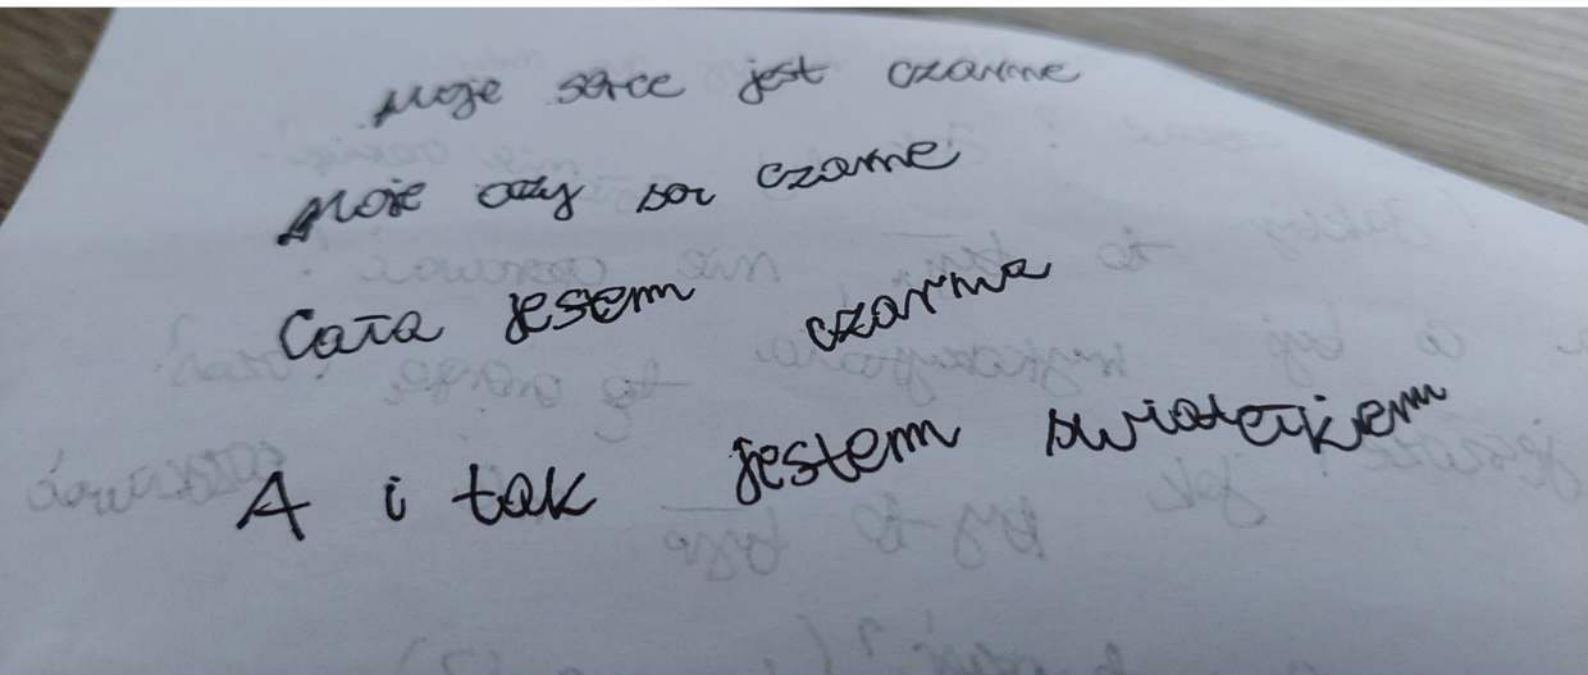 Moje serce jest czarne
Moje oczy są czarne
Cała jesem czarna
A i tak jestem światełkiem